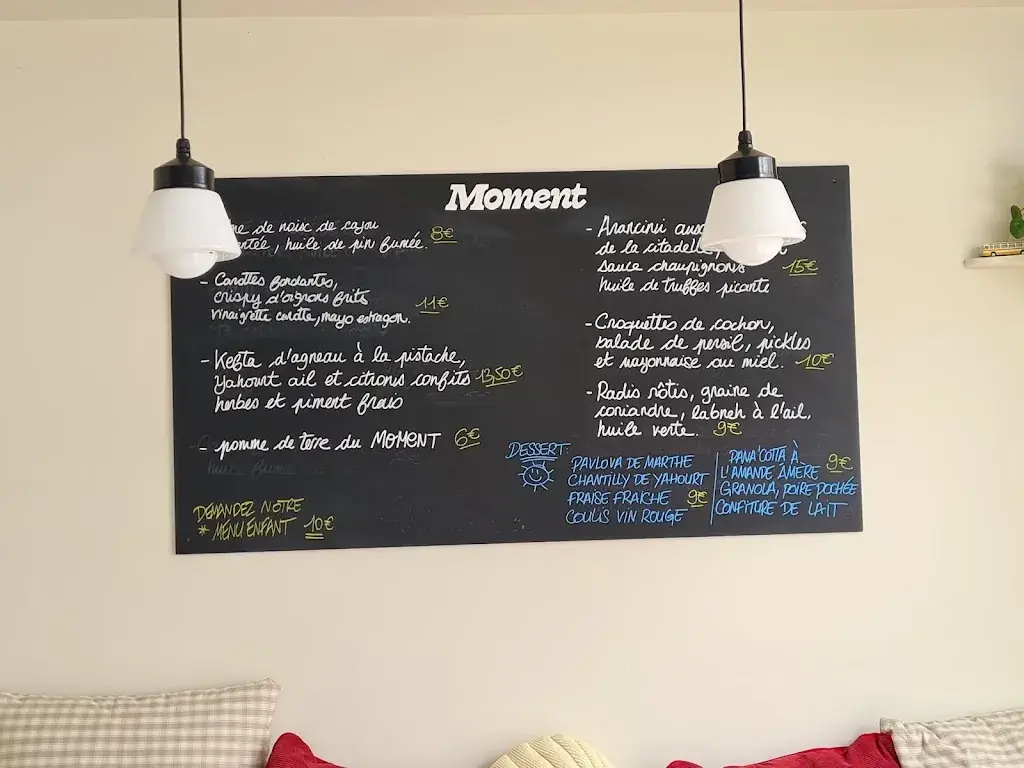 Moment
de noix de cajou
, huile de pin fumée. 8€
- Carottes fondantes,
crispy d'oignons frits
vinaigrette carotte, mayo estragon. 11€
- Kefta d'agneau à la pistache,
yahourt ail et citrons confits 13,50€
herbes et piment frais
pomme de terre du MOMENT 6€
DEMANDEZ NOTRE
* MENU ENFANT 10€
- Arancini
de la citadelle
sauce champignons 15€
huile de truffes picante
- Croquettes de cochon,
salade de persil, pickles
et mayonnaise au miel. 10€
- Radis rôtis, graine de
coriandre, labneh à l'ail,
huile verte. 9€
DESSERT:
PAVLOVA DE MARTHE
CHANTILLY DE YAHOURT
FRAISE FRAICHE 9€
COULIS VIN ROUGE
PANA'COTTA À
L'AMANDE AMÈRE 9€
GRANOLA, POIRE POCHÉE
CONFITURE DE LAIT